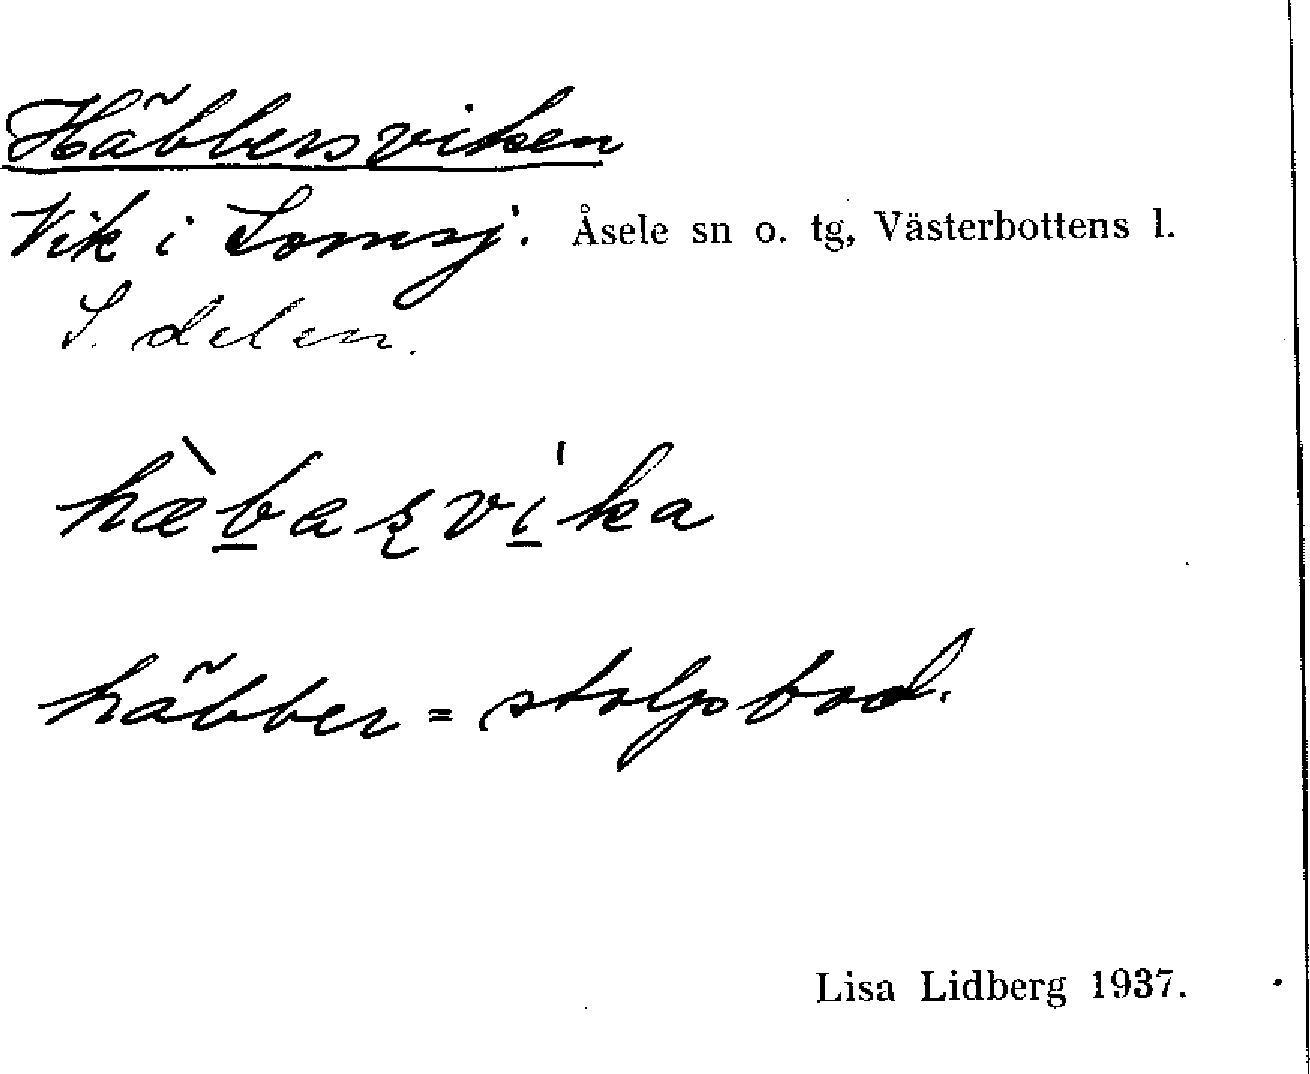 Häbbersviken
Vik i Lomsj. Åsele sn o. tg, Västerbottens l.
S. delen.
hæ̀baʂvi̍ka
häbber = stolpbod.
Lisa Lidberg 1937.